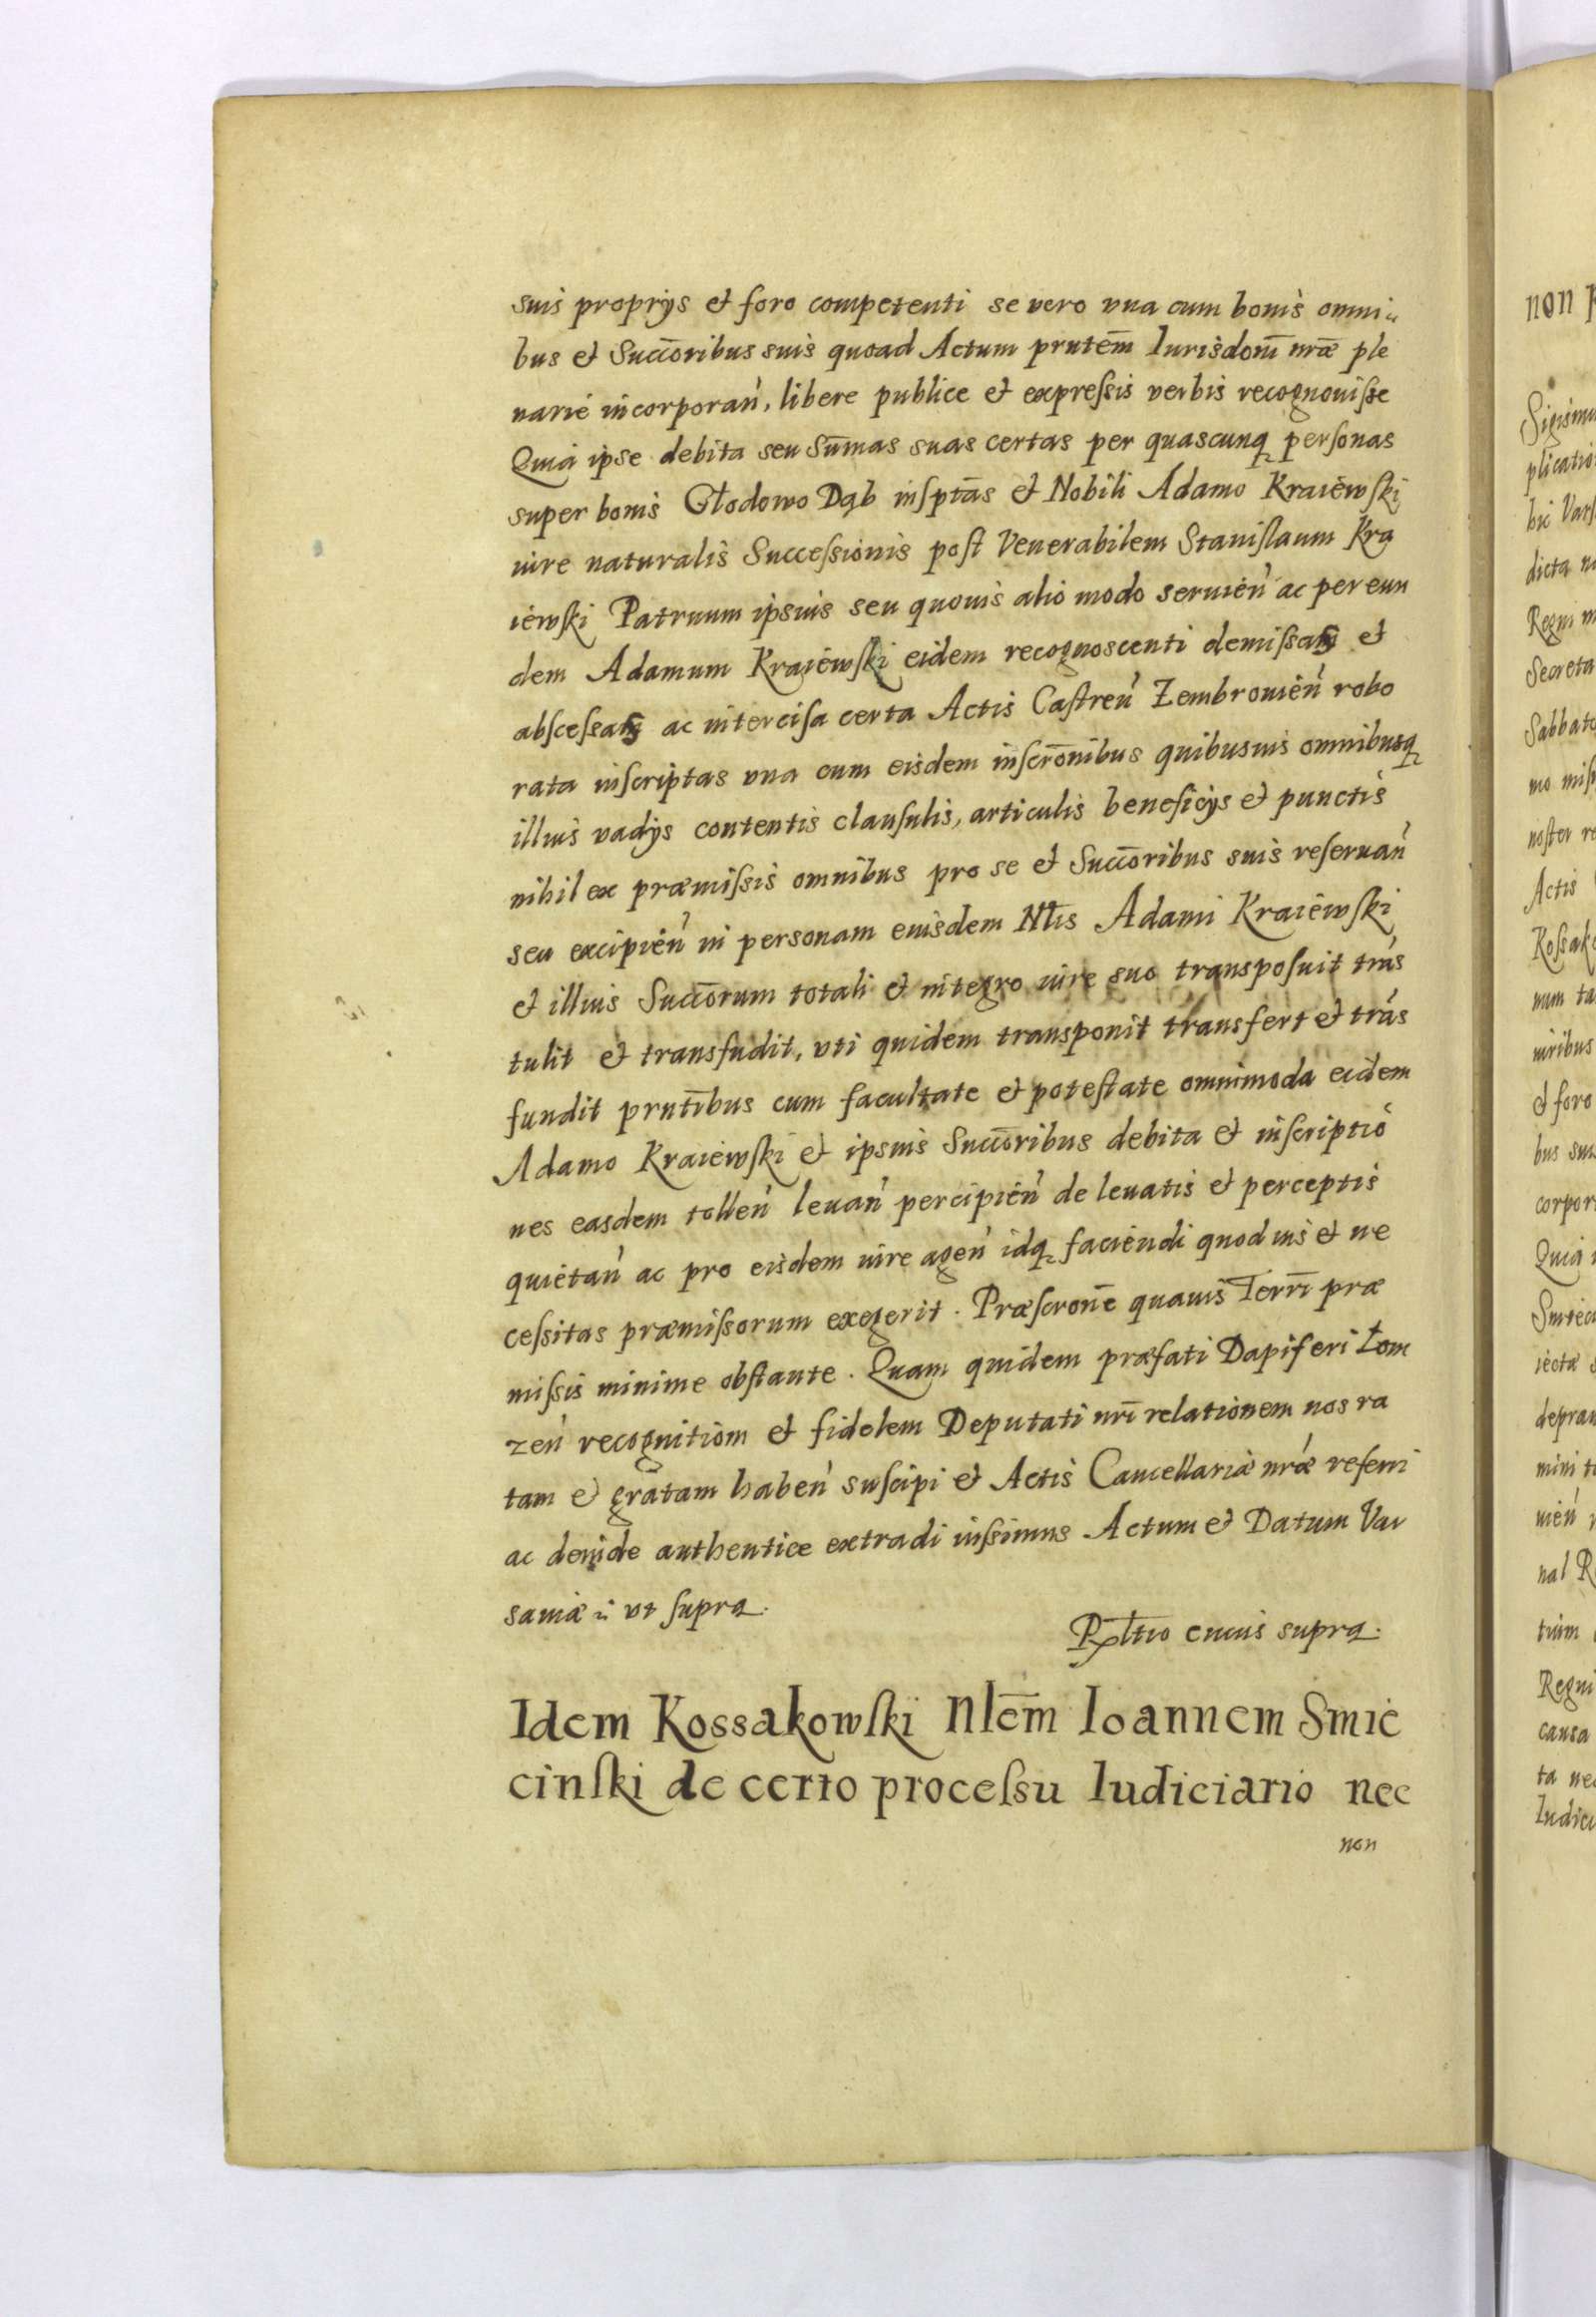 suis proprijs et foro competenti se vero vna cum bonis omni„
bus et Succōribus suis quoad Actum prntēm Iurisdonī nrāe ple
narie incorporań, libere publice et expreſsis verbis recognouiſse
Quia ipse debita seu Sūmas suas certas per quascunq perſonas
super bonis Głodowo Dąb inſptās et Nobili Adamo Kraiewſki
iure naturalis Succeſsionis poſt Venerabilem Staniſlaum Kra
iewſki Patruum ipsius seu quouis alio modo seruień ac per eun
dem Adamum Kraiewſki eidem recognoscenti demiſsas et
abſceſsas ac interciſa certa Actis Caſtreń Zembrouień robo
rata inſcriptas vna cum eisdem inſcrōnibus quibusuis omnibusq
illius vadijs contentis clauſulis, articulis beneficijs et punctis
nihil ex præmiſsis omnibus pro se et Succōribus suis reſeruań
seu excipień in personam eiusdem Nłis Adami Kraiewſki
et illius Succōrum totali et integro iure suo transpoſuit trás
tulit et transfudit, vti quidem transponit transfert et trás
fundit prntībus cum facultate et poteſtate omnimoda eidem
Adamo Kraiewſki et ipsius Succōribus debita et inſcriptió
nes easdem tolleń leuań percipień de leuatis et perceptis
quietań ac pro eisdem iure ageń idq faciendi quod ius et ne
ceſsitas præmiſsorum exegerit. Præſcronē quauis Terrī præ
miſsis minime obſtante. Quam quidem præfati Dapiferi Łom
zeń recognitiom et fidelem Deputati nrī relationem nos ra
tam et gratam habeń suſcipi et Actis Cancellariæ nráe referri
ac deinde authentice extradi iuſsimus Actum et Datum Var
sauiæ ii vt ſupra.
Rłtio cuius supra.
Idem Kossakowſki Nlēm Ioannem Smie
cinſki de certo proceſsu Iudiciario nec
non